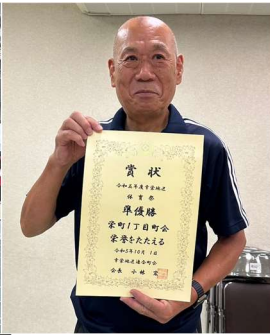 賞状
令和五年度市営地連
体育祭
準優勝
栄町1丁目町会
栄誉をたたえる
令和5年10月1日
市営地連合町会
会長 小林